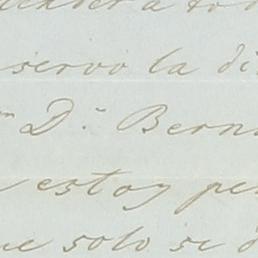 servo la di
D.ⁿ Bern
estoy per
solo se d